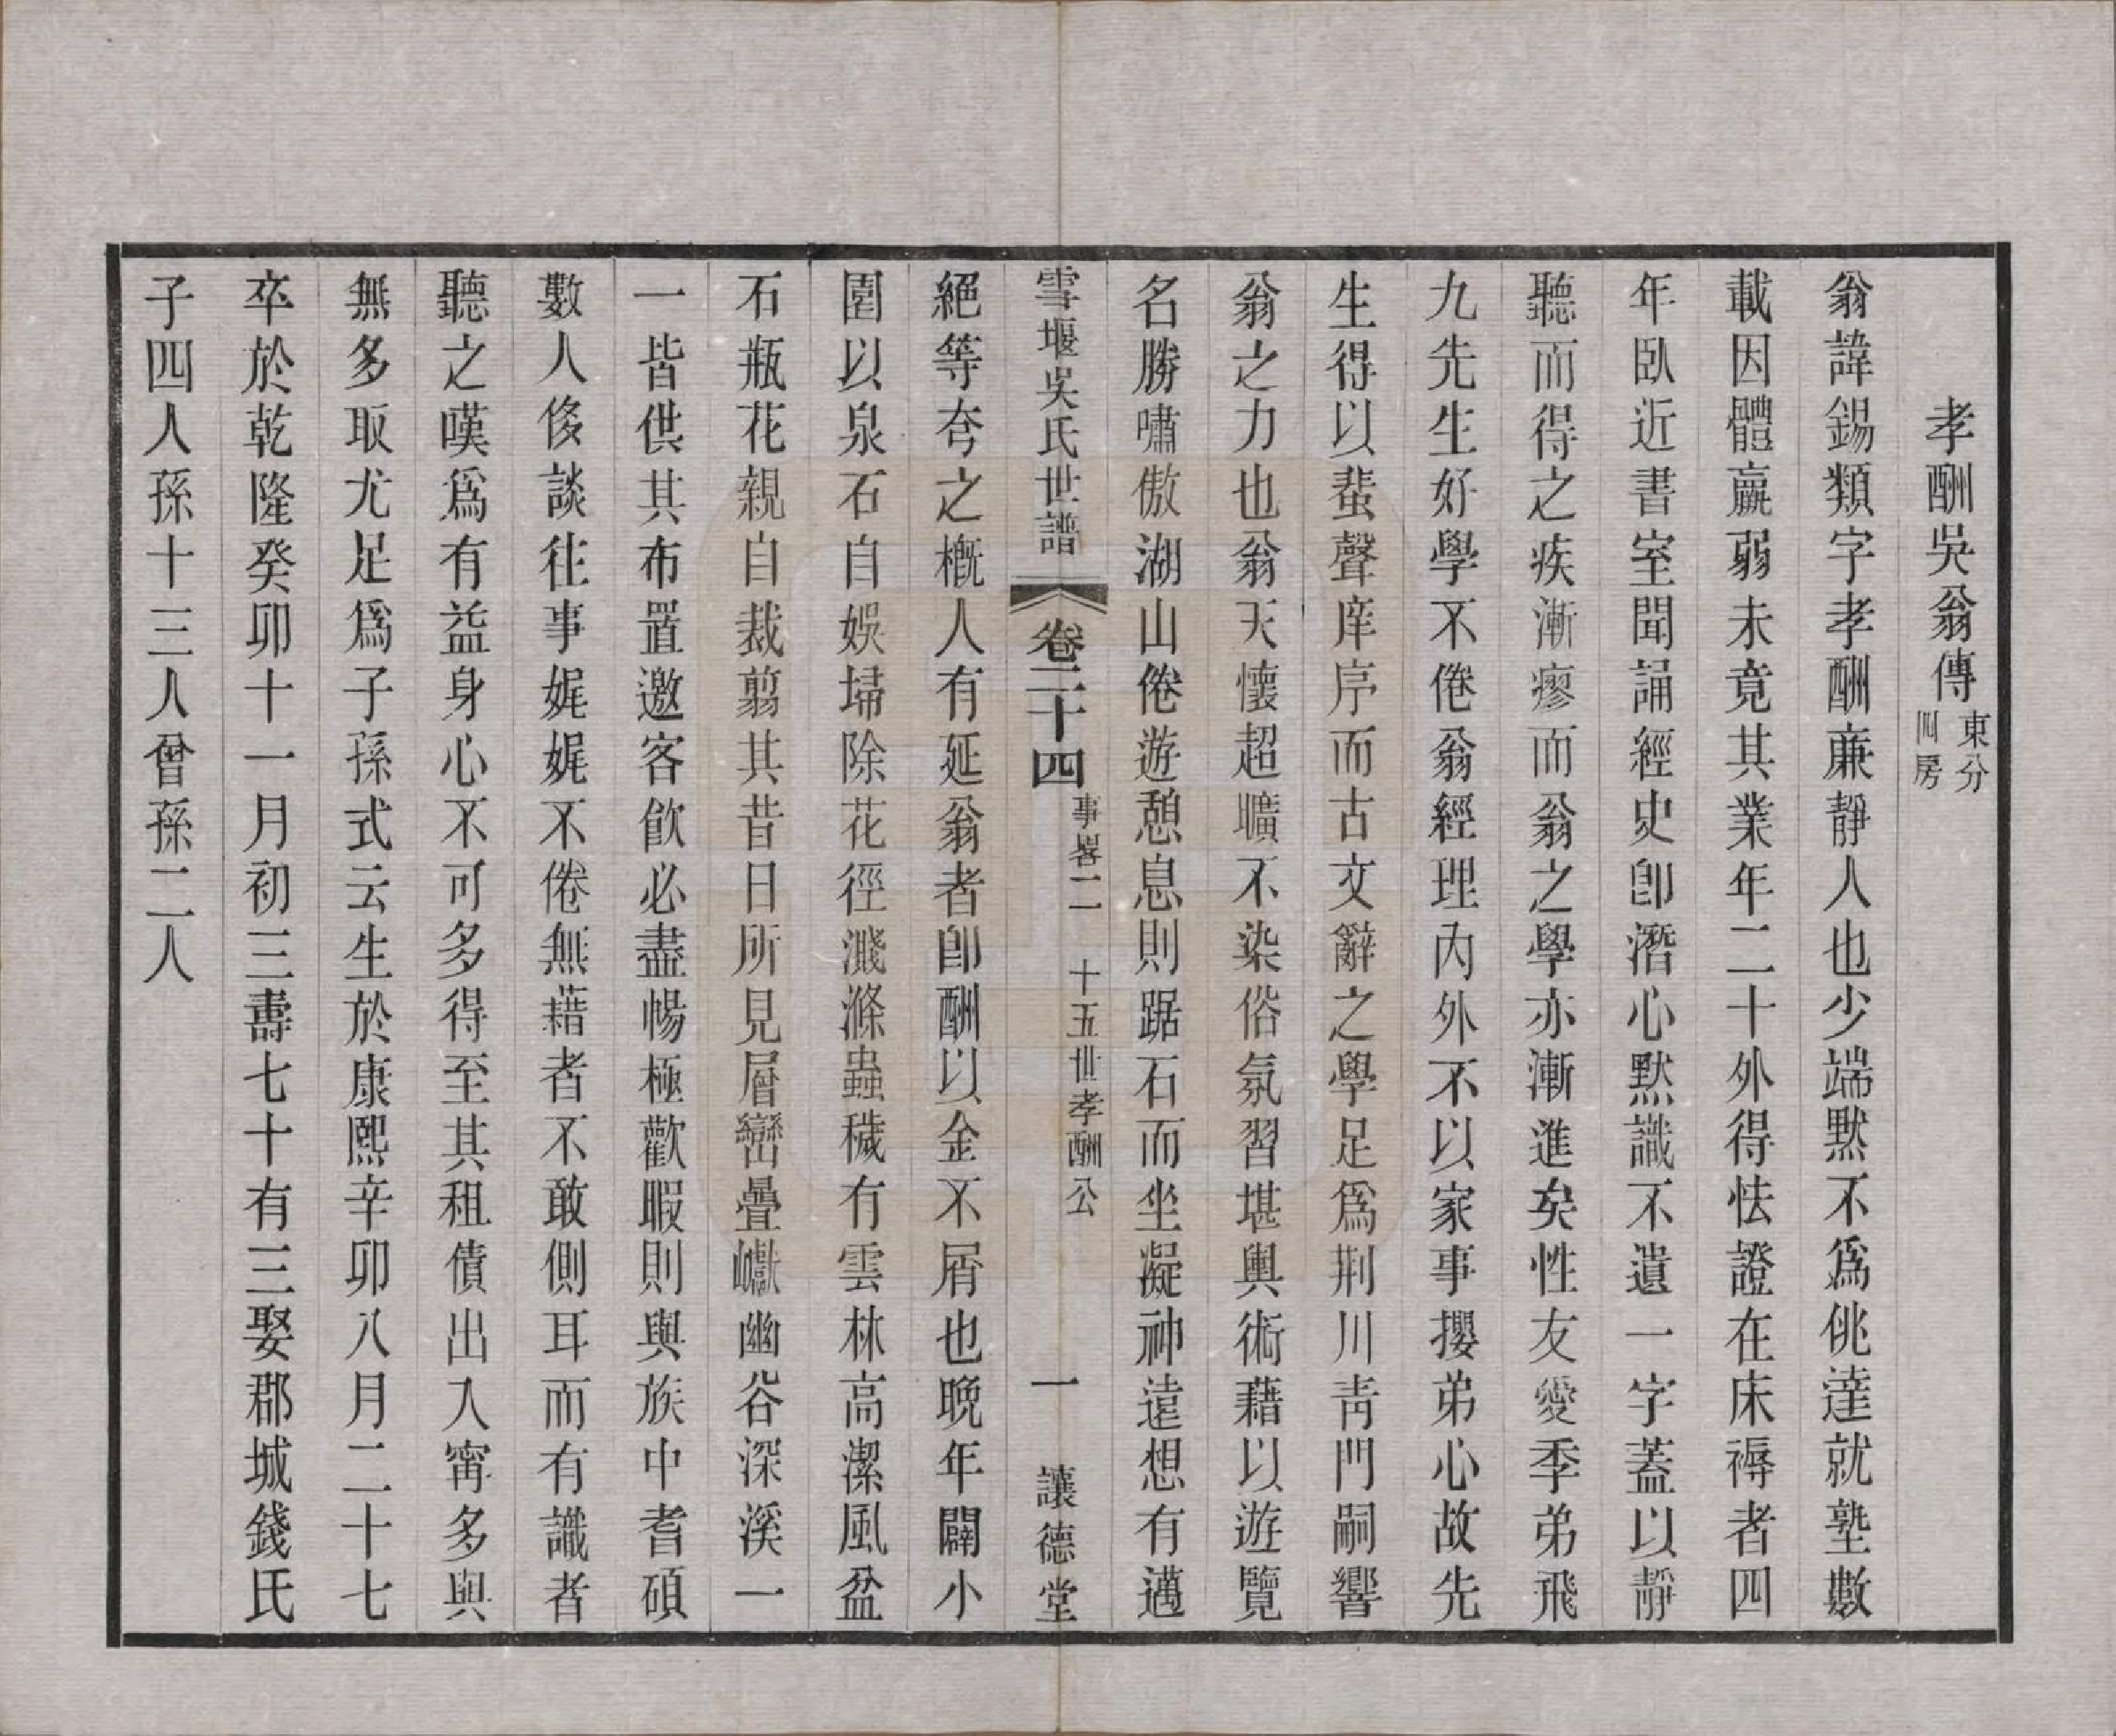 孝酬吳翁傳東分四房
翁諱錫類字孝酬亷靜人也少端默不爲佻達就塾數
載因體羸弱未竟其業年二十外得怯證在床褥者四
年臥近書室聞誦經史卽潛心默識不遺一字蓋以靜
聽而得之疾漸瘳而翁之學亦漸進矣性友愛季弟飛
九先生好學不倦翁經理內外不以家事攖弟心故先
生得以蜚聲庠序而古文辭之學足爲荆川靑門嗣響
翁之力也翁天懷超曠不染俗氛習堪輿術藉以遊覽
名勝嘯傲湖山倦遊憩息則踞石而坐凝神遠想有邁
雪堰吳氏世譜 卷二十四 事畧二 十五世孝酬公 一 讓德堂
絕等夸之槪人有延翁者卽酬以金不屑也晩年闢小
園以泉石自娛埽除花徑濺滌蟲穢有雲林高潔風盆
石瓶花親自裁翦其昔日所見層巒疊巘幽谷深溪一
一皆供其布置邀客飮必盡暢極歡暇則與族中耆碩
數人俊談往事娓娓不倦無藉者不敢側耳而有識者
聽之嘆爲有益身心不可多得至其租債出入甯多與
無多取尤足爲子孫式云生於康熙辛卯八月二十七
卒於乾隆癸卯十一月初三壽七十有三娶郡城錢氏
子四人孫十三人曾孫二人